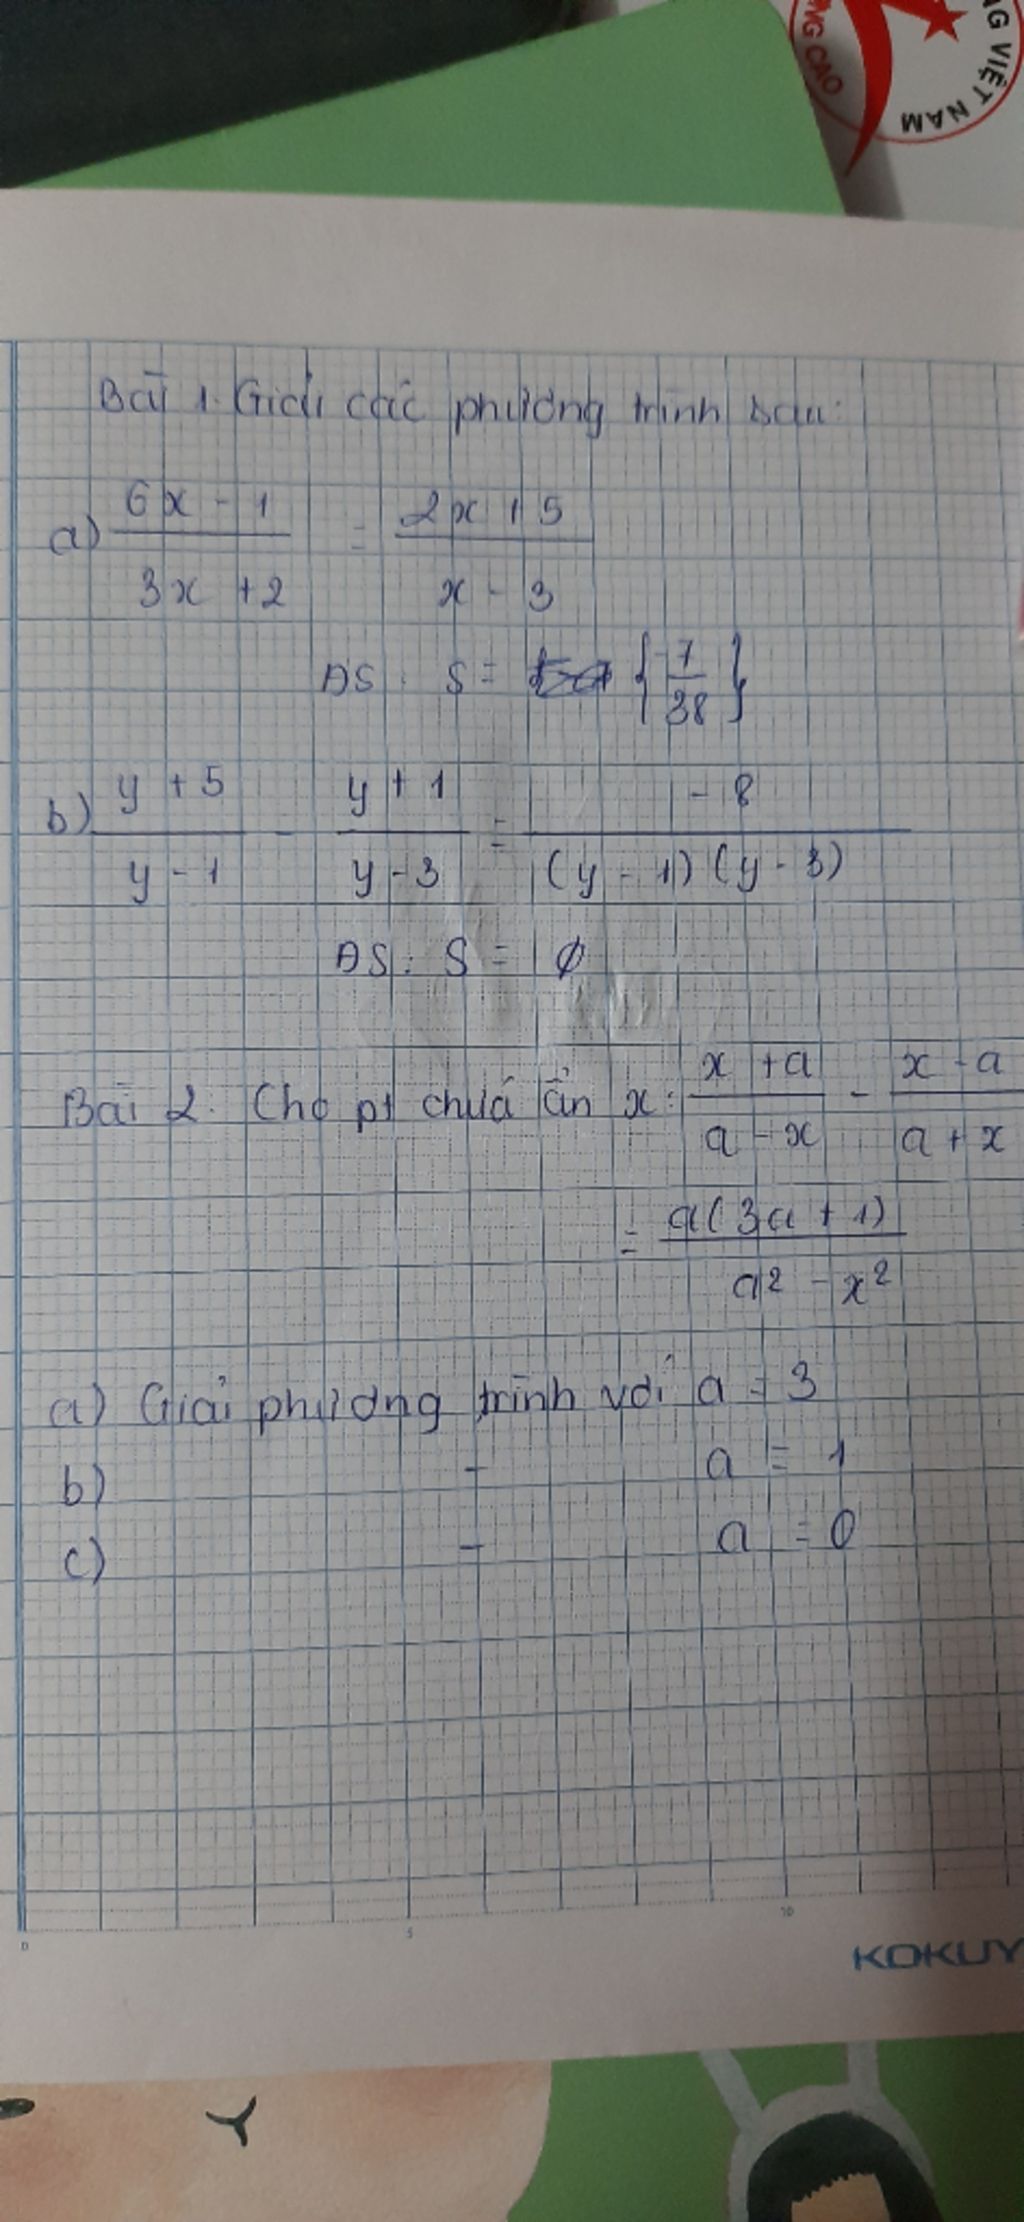 NG CAO
NG VIỆT NAM
Bài 1. Giải các phương trình sau:
a) 6x - 1 / 3x + 2 = 2x + 5 / x - 3
ĐS: S = { -7/38 }
b) y + 5 / y - 1 - y + 1 / y - 3 = - 8 / (y - 1)(y - 3)
ĐS: S = ∅
Bài 2. Cho pt chứa ẩn x: x + a / a - x - x - a / a + x
= a(3a + 1) / a² - x²
a) Giải phương trình với a = 3
b) - a = 1
c) - a = 0
0 5 10
KOKUY